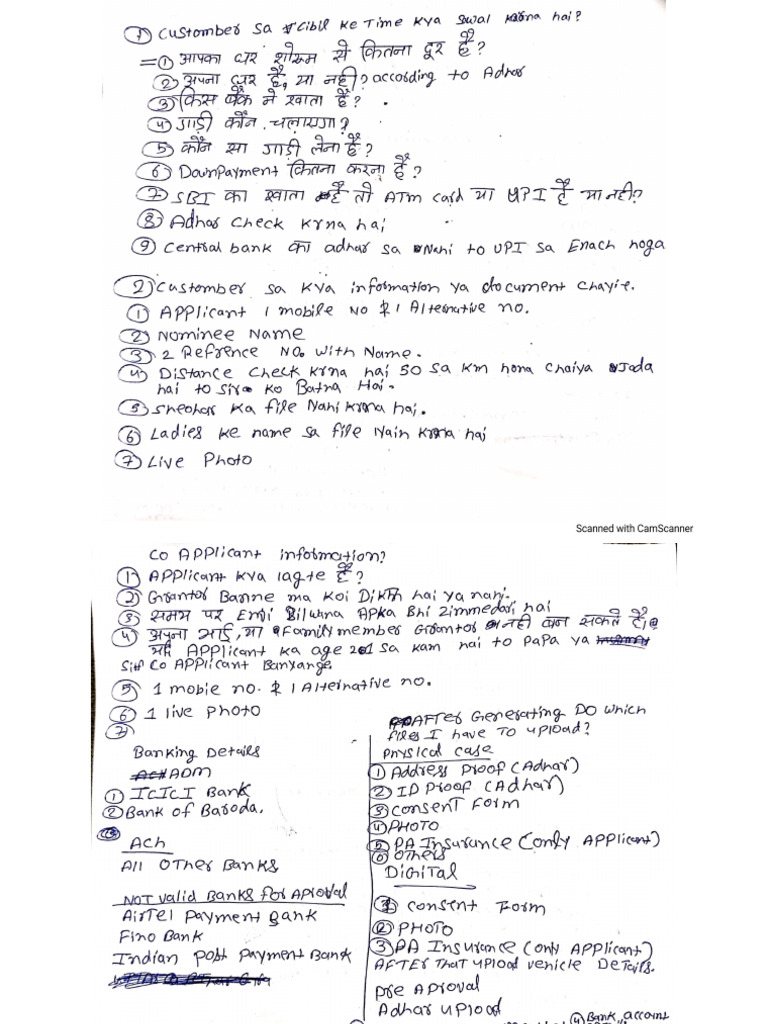 ① Customber sa Cibil ke Time Kya Swal Karna hai?
=① आपका घर शोरूम से कितना दूर है?
② अपना घर है, या नही? according to Adhar
③ किस बैंक मे खाता है?
④ गाड़ी कौन चलायगा?
⑤ कौन सा गाड़ी लेना है?
⑥ DownPayment कितना करना है?
⑦ SBI का खाता है तो ATM Card या UPI है या नही?
⑧ Adhar Check Krna hai
⑨ Central bank का adhar sa Nahi to UPI sa Enach hoga
② Customber sa Kya information ya document Chayie.
① APPlicant 1 mobile NO & 1 Alternative no.
② Nominee Name
③ 2 Refrence No. With Name.
④ Distance Check Krna hai 50 sa Km hona Chaiya Jada
hai to Sir ko Batna Hai.
⑤ Sheohar Ka file Nahi Krna hai.
⑥ Ladies ke name sa file Nain Krna hai
⑦ Live Photo
Scanned with CamScanner
CO APPlicant information?
① APPlicant Kya lagte है?
② Grantor Banne ma Koi Dikth hai ya nahi.
③ समय पर Emi Bilwana Apka Bhi Zimmedari hai
④ अपना भाई, या Family member Grantor नही बन सकते है।
यदि APPlicant Ka age 21 sa Kam hai to PaPa ya
Co APPlicant Banyange.
⑤ 1 mobie no. & 1 Alternative no.
⑥ 1 live Photo
⑦
Banking Details
ADM
① ICICI Bank
② Bank of Baroda.
Ach
All Other Banks
NOT Valid Banks for Aproval
Airtel Payment Bank
Fino Bank
Indian Post Payment Bank
After Generating DO Which
files I have To upload?
Physical Case
① Address Proof (Adhar)
② ID Proof (Adhar)
③ Consent Form
④ PHOTO
⑤ PA Insurance (only Applicant)
⑥ Others
Digital
① Consent Form
② PHOTO
③ PA Insurance (only Applicant)
After that upload vehicle Details.
Pre Aproval
Adhar upload
④ Bank account